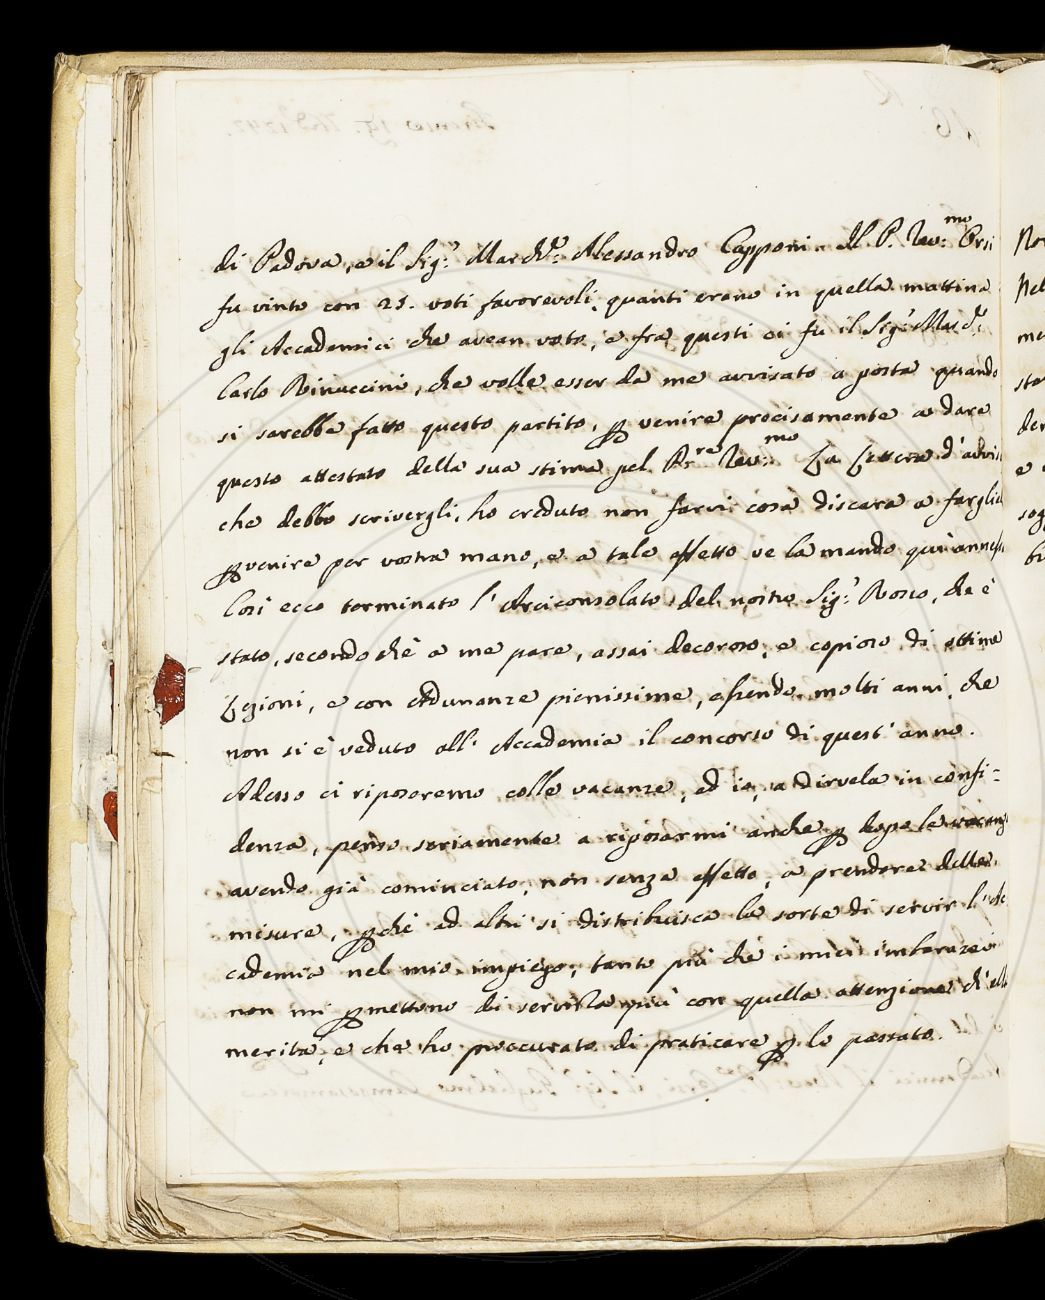 di Padova, e il Sig.r March.e Alessandro Capponi. Il P. Rev.mo Orsi
fu vinto con 25. voti favorevoli, quanti erano in quella mattina
gli Accademici che avean voto, e fra questi ci fu il Sig.r March.e
Carlo Rinuccini, che volle esser da me avvisato a posta quando
si sarebbe fatto questo partito, p venire precisamente a dare
questo attestato della sua stima pel P.re Rev.mo La Lettera d'avviso
che debbo scrivergli, ho creduto non farvi cosa discara a fargliela
pvenire per vostra mano, e a tale effetto ve la mando qui annessa
Così ecco terminato l'Arciconsolato del nostro Sig.r Rosso, che è
stato, secondochè a me pare, assai decoroso, e copioso di ottime
Lezioni, e con Adunanze pienissime, essendo molti anni, che
non si è veduto all'Accademia il concorso di quest'anno.
Adesso ci riposeremo colle vacanze, ed io, a dirvela in confi-
denza, penso seriamente a riposarmi anche p dopo le vacanze
avendo già cominciato, non senza effetto, a prendere delle
misure, pchè ad altri si distribuisca la sorte di servir l'Ac
cademia nel mio impiego; tanto più che i miei imbarazzi
non mi pmettono di servirla più con quella attenzione ch'ella
merita, e che ho proccurato di praticare p lo passato.